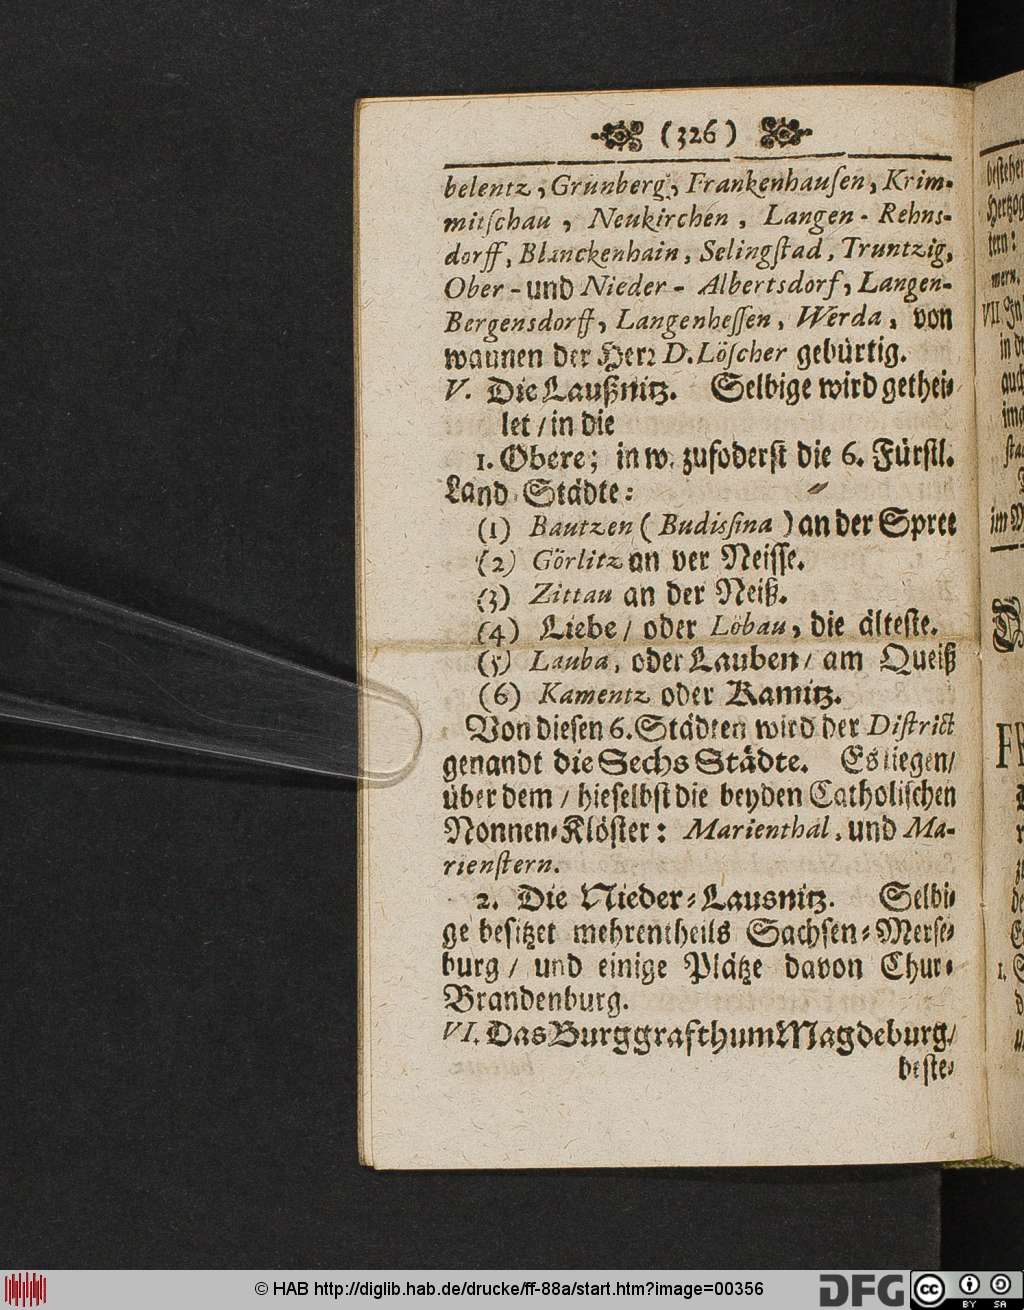 (326)
belentz, Grunberg, Frankenhauſen, Krim-
mitſchau, Neukirchen, Langen-Rehns-
dorff, Blanckenhain, Selingſtad, Truntzig,
Ober- und Nieder- Albertsdorf, Langen-
Bergensdorff, Langenheſſen, Werda, von
wannen der Herr D. Löſcher gebürtig.
V. Die Laußnitz. Selbige wird gethei-
let / in die
1. Obere; in w. zufoderſt die 6. Fürſtl.
Land Städte:
(1) Bautzen (Budisſina) an der Spree
(2) Görlitz an der Neiſſe.
(3) Zittau an der Neiß.
(4) Liebe / oder Löbau, die älteſte.
(5) Lauba, oder Lauben / am Queiß
(6) Kamentz oder Kamitz.
Von dieſen 6. Städten wird der Diſtrict
genandt die Sechs Städte. Es liegen /
über dem / hieſelbſt die beyden Catholiſchen
Nonnen-Klöſter: Marienthal, und Ma-
rienſtern.
2. Die Nieder-Lausnitz. Selbi-
ge beſitzet mehrentheils Sachſen-Merſe-
burg / und einige Plätze davon Chur-
Brandenburg.
VI. Das Burggrafthum Magdeburg /
beſte-
beſtehe
Hertzog
tern:
mern.
VII. In
in d
auch
im W
FR
1. S
© HAB http://diglib.hab.de/drucke/ff-88a/start.htm?image=00356
DFG
cc BY SA